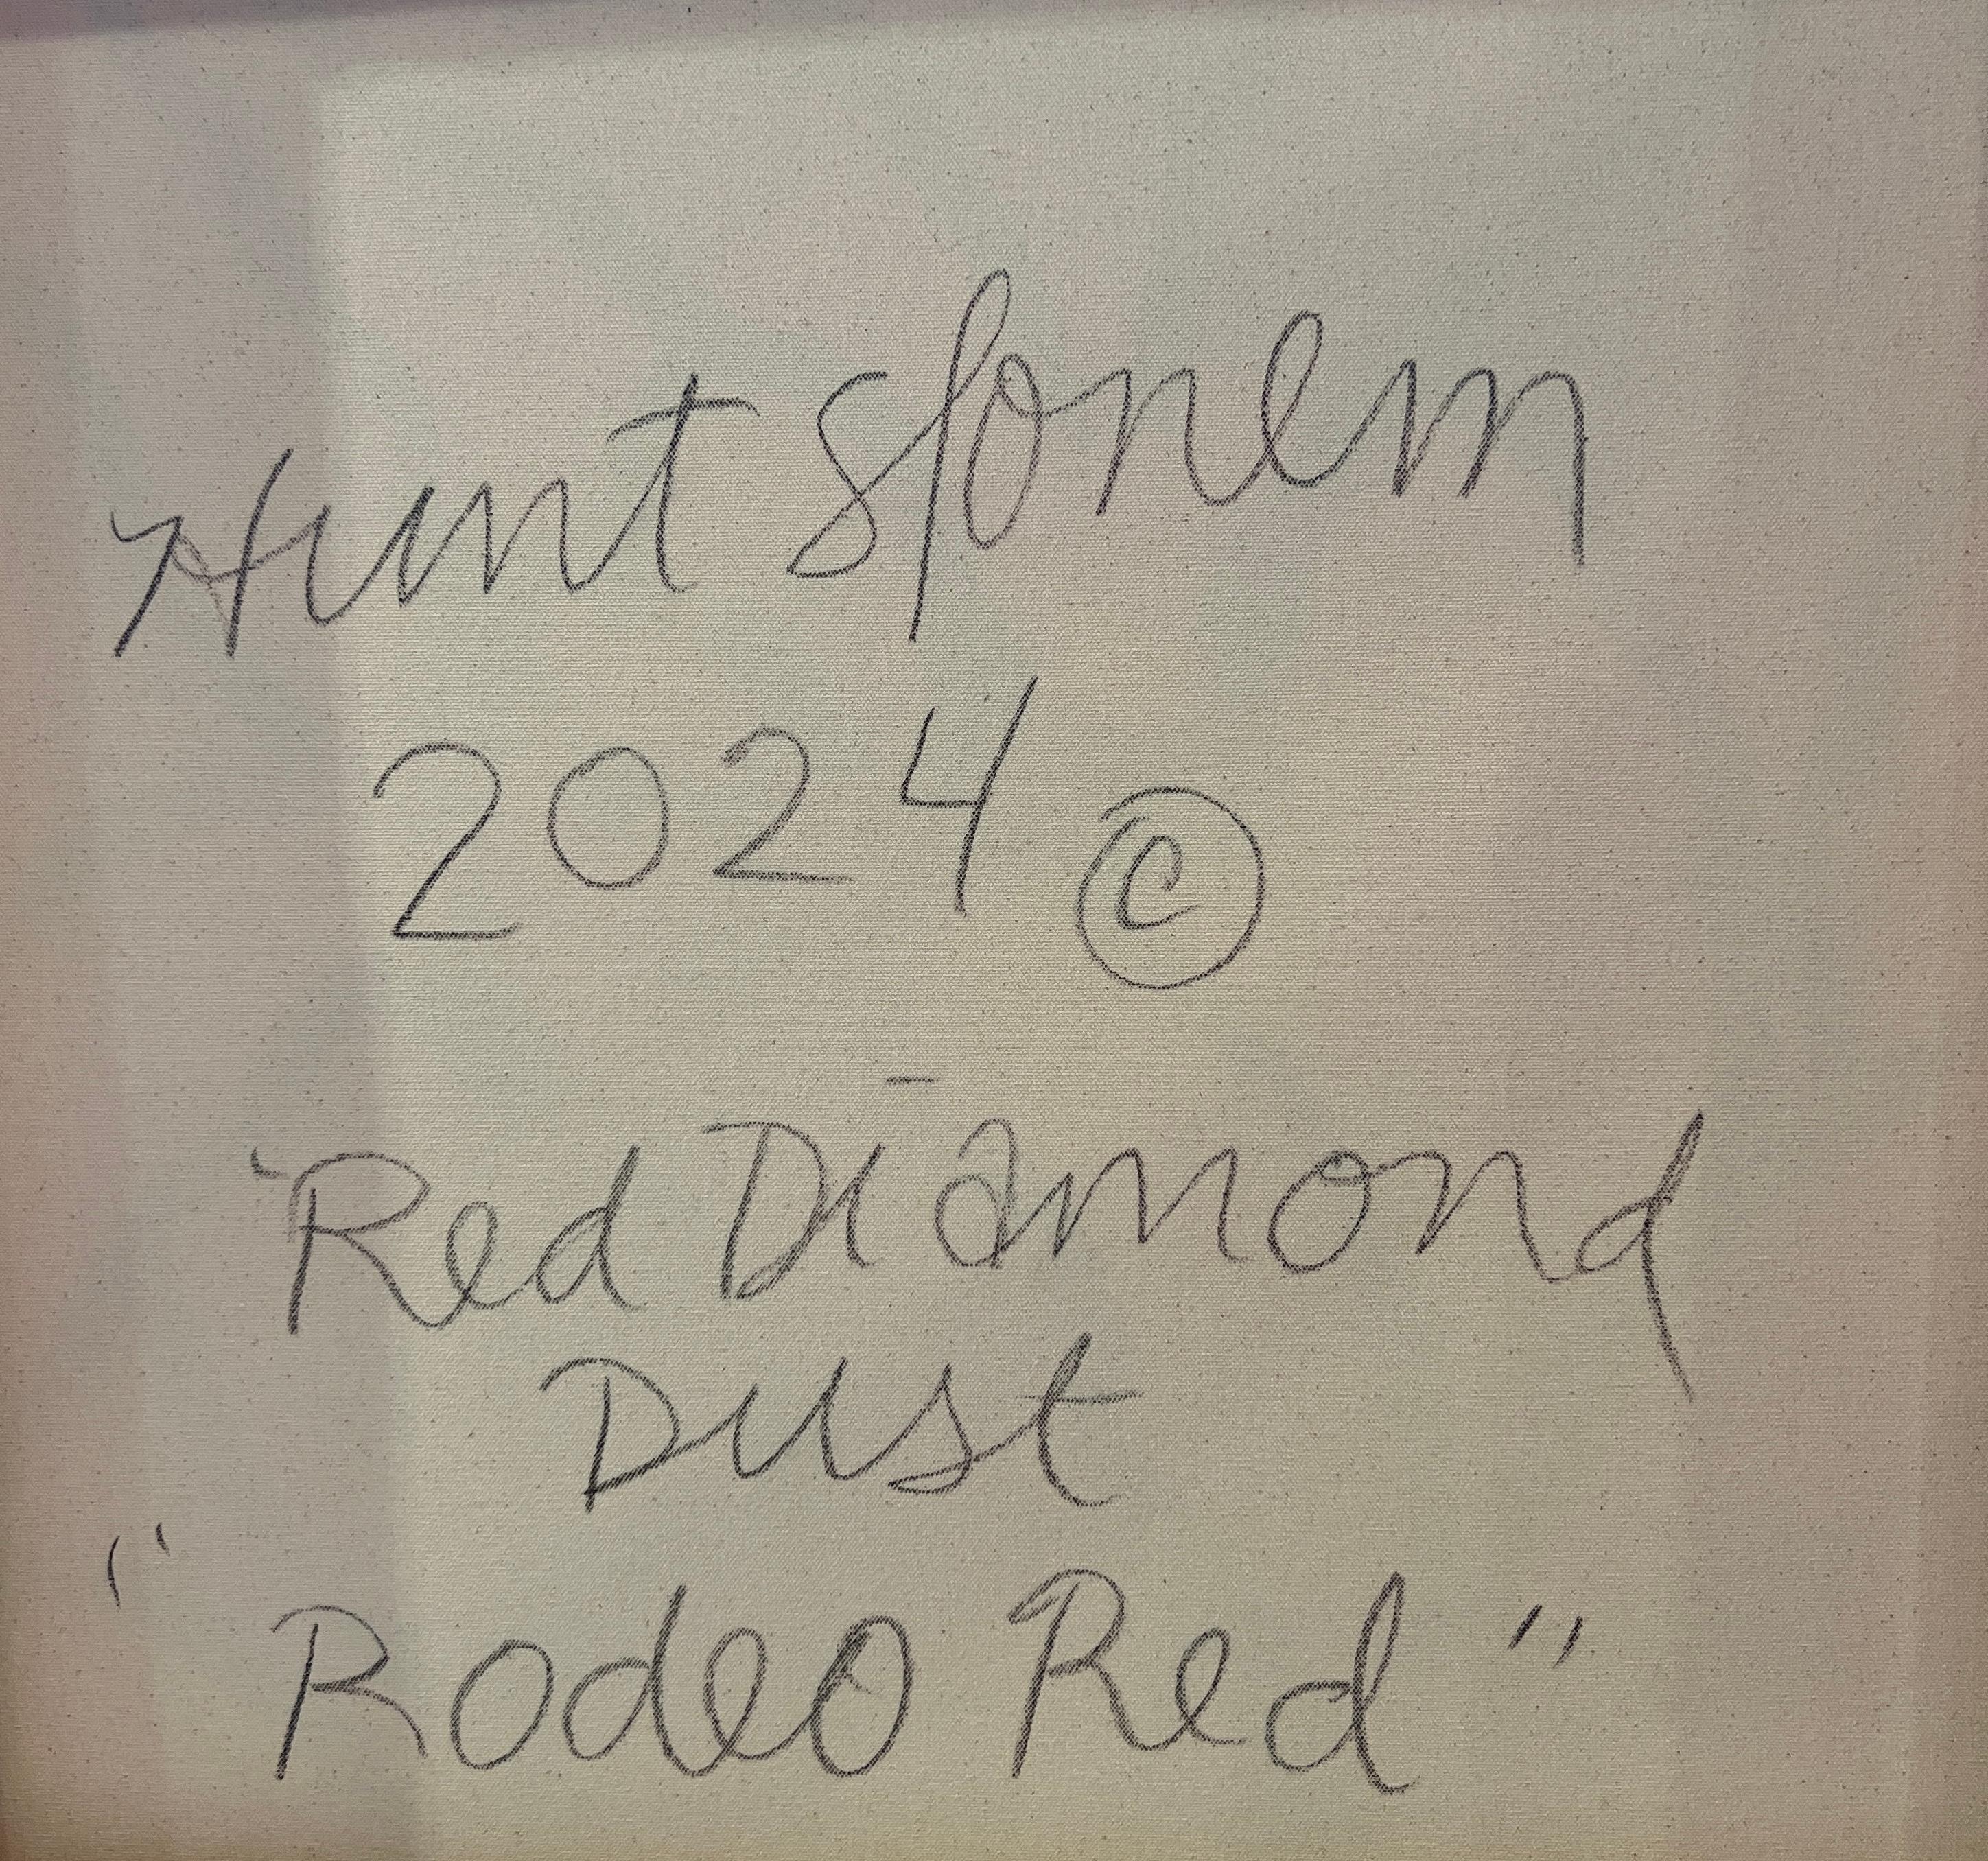 Hunt Slonem
2024 ©
Red Diamond
Dust
"Rodeo Red"